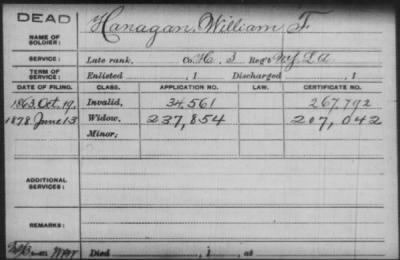 DEAD
NAME OF SOLDIER: Hanagan, William F
SERVICE: Late rank, Co. H, 3 Reg't Inf La
TERM OF SERVICE: Enlisted , 1 Discharged , 1
DATE OF FILING. CLASS. APPLICATION NO. LAW. CERTIFICATE NO.
1863. Oct. 19. Invalid, 34,561 267,792
1878 June 13 Widow, 237,854 207,042
Minor,
ADDITIONAL SERVICES:
REMARKS:
Died , 1 , at